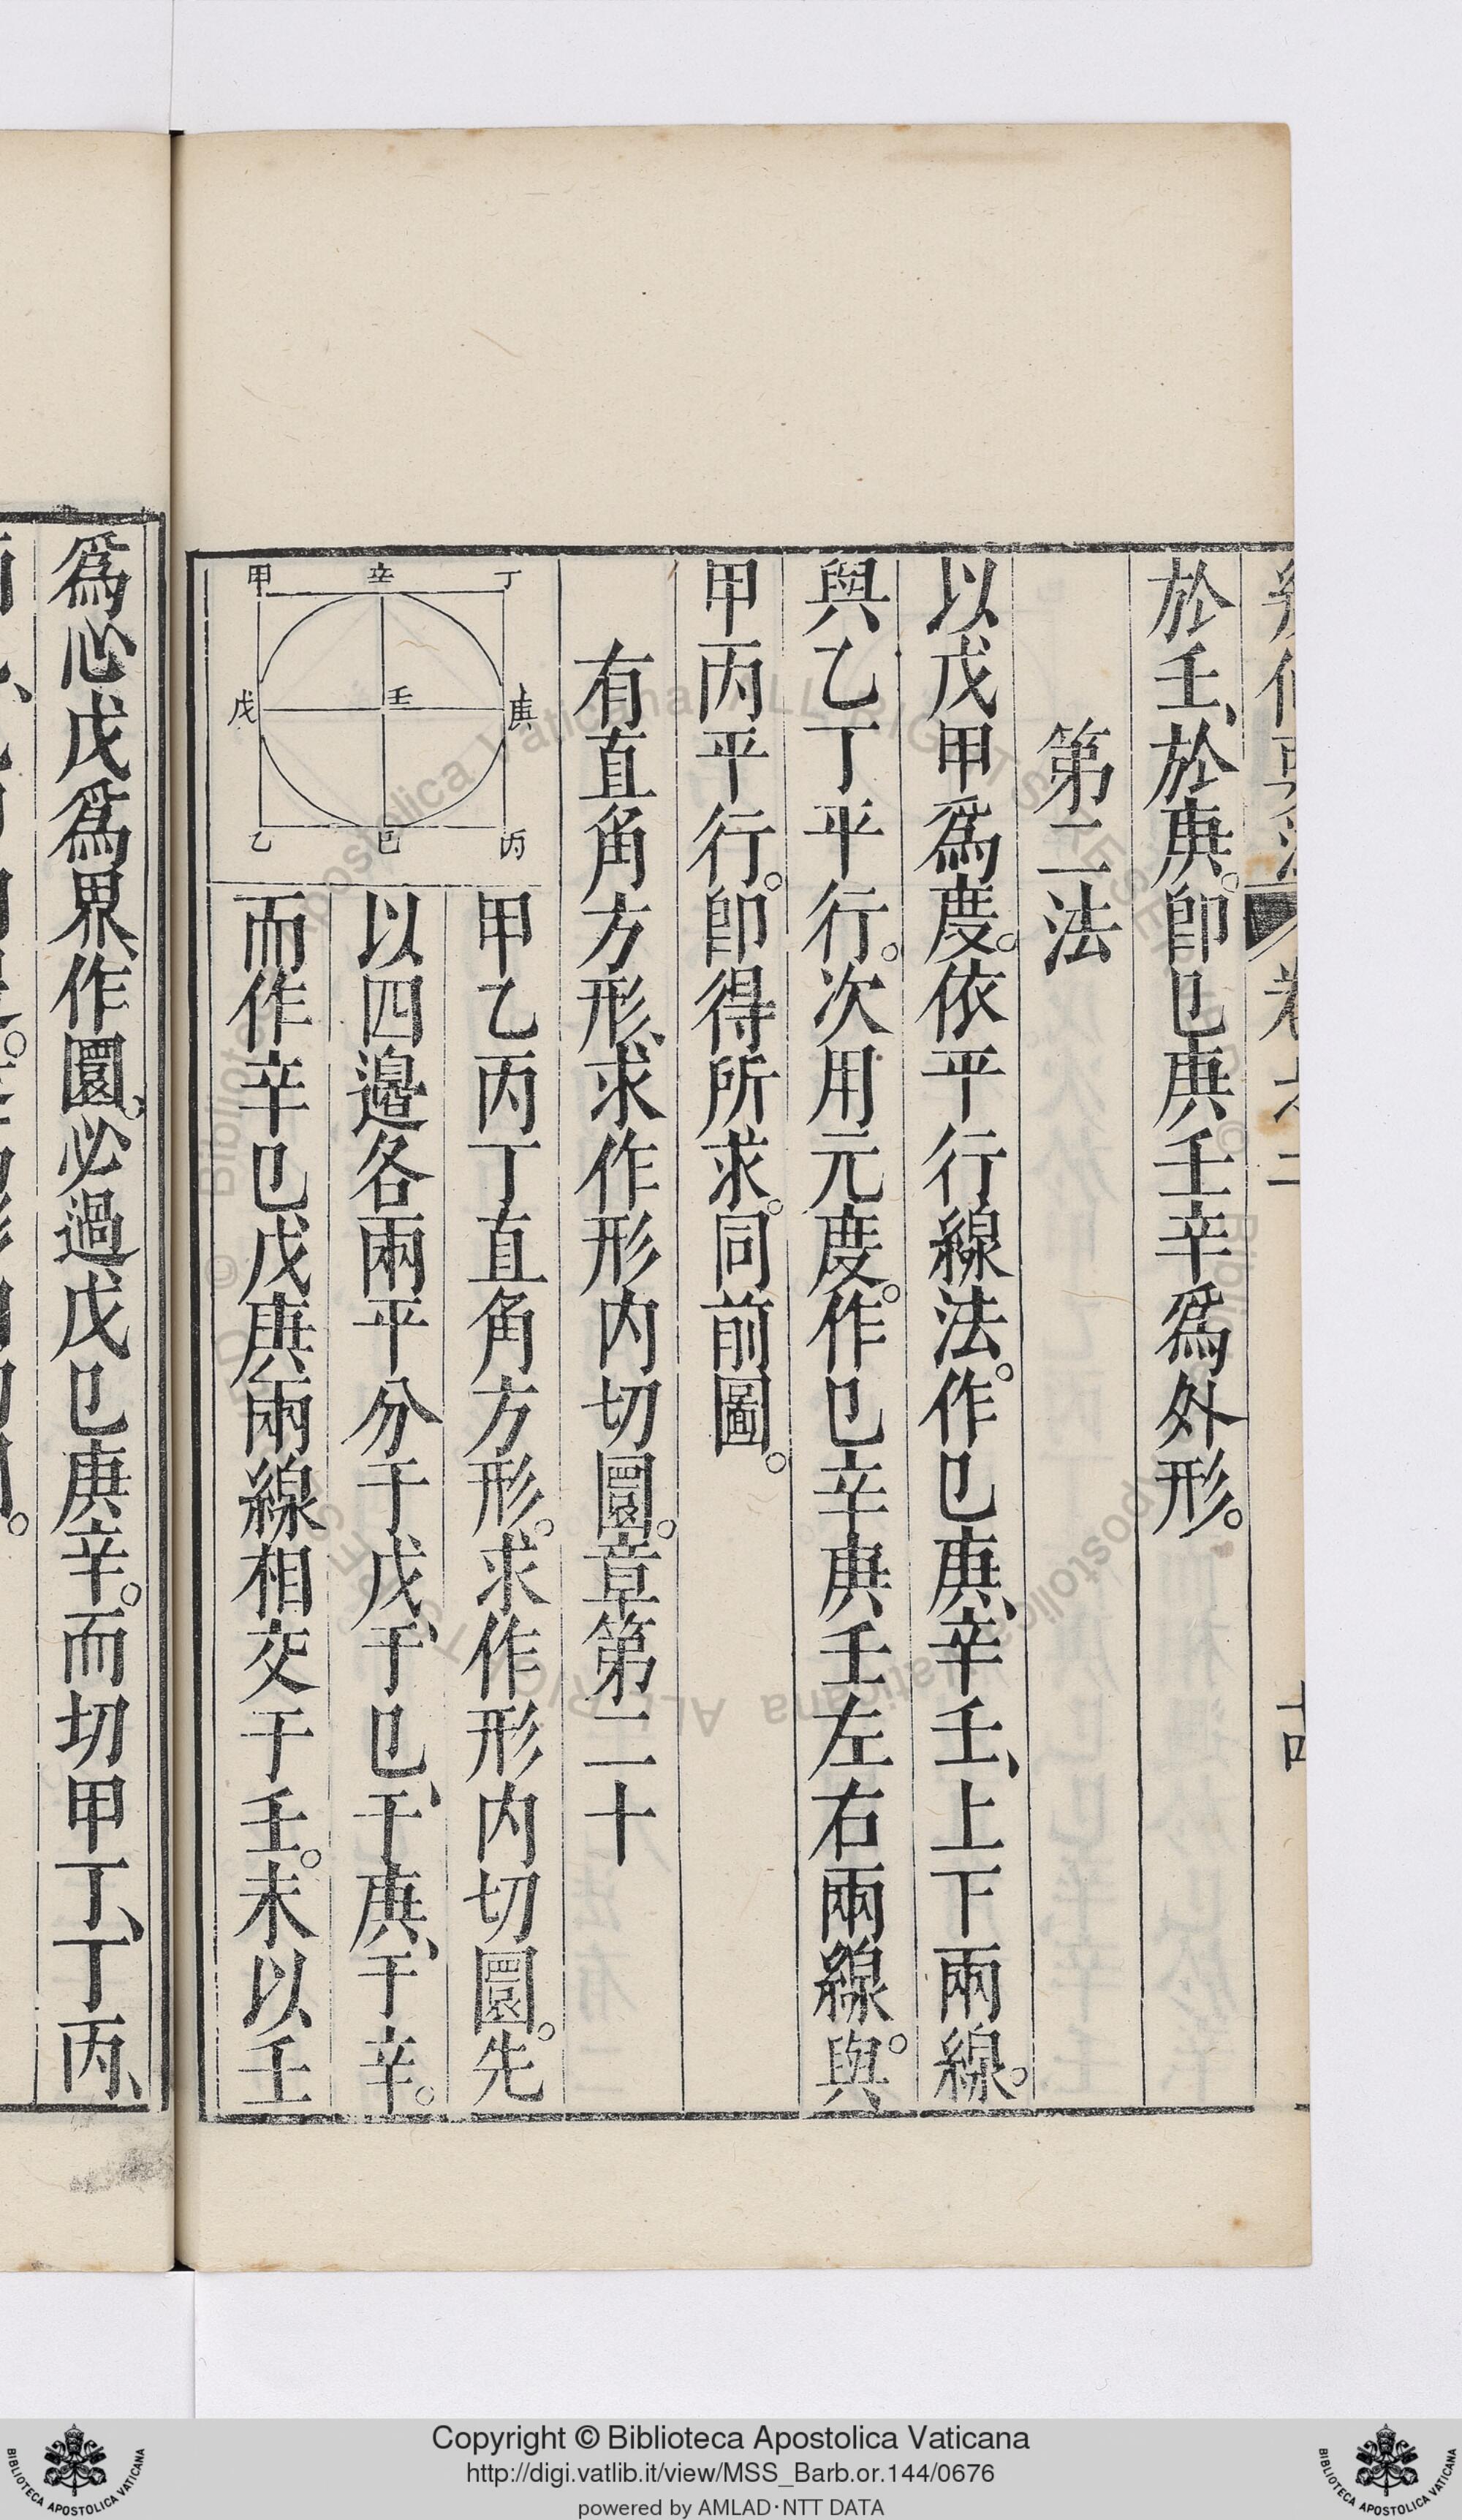 於壬、於庚。卽巳庚壬辛爲外形。
第二法
以戊甲爲度。依平行線法。作巳庚、辛壬、上下兩線。
與乙丁平行。次用元度。作巳辛庚壬左右兩線。與
甲丙平行。卽得所求。同前圖。
有直角方形、求作形内切圜。章第二十
甲 辛 丁
戊 壬 庚
乙 巳 丙
甲乙丙丁直角方形。求作形内切圜。先
以四邉各兩平分于戊、于巳、于庚、于辛。
而作辛巳戊庚兩線相交于壬。末以壬
爲心戊爲界、作圜。必過戊巳庚辛。而切甲丁、丁丙、
Copyright © Biblioteca Apostolica Vaticana
http://digi.vatlib.it/view/MSS_Barb.or.144/0676
powered by AMLAD·NTT DATA
BIBLIOTECA APOSTOLICA VATICANA
BIBLIOTECA APOSTOLICA VATICANA